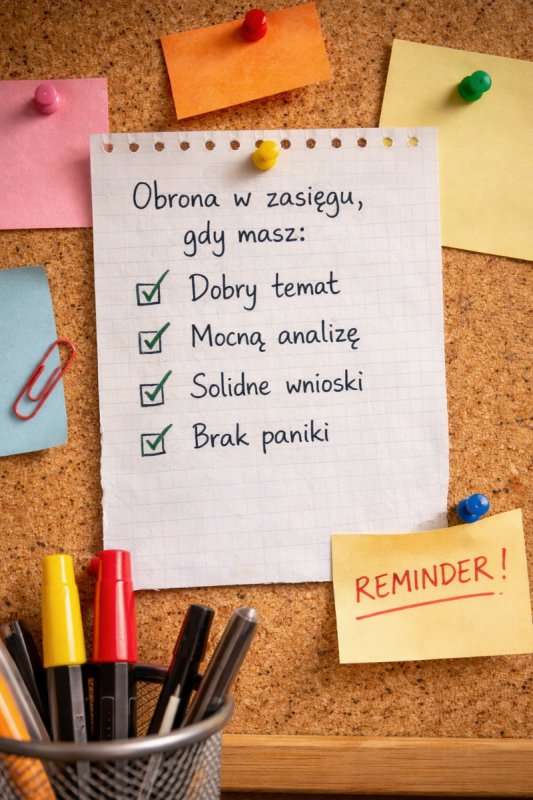 Obrona w zasięgu,
gdy masz:
Dobry temat
Mocną analizę
Solidne wnioski
Brak paniki
REMINDER!